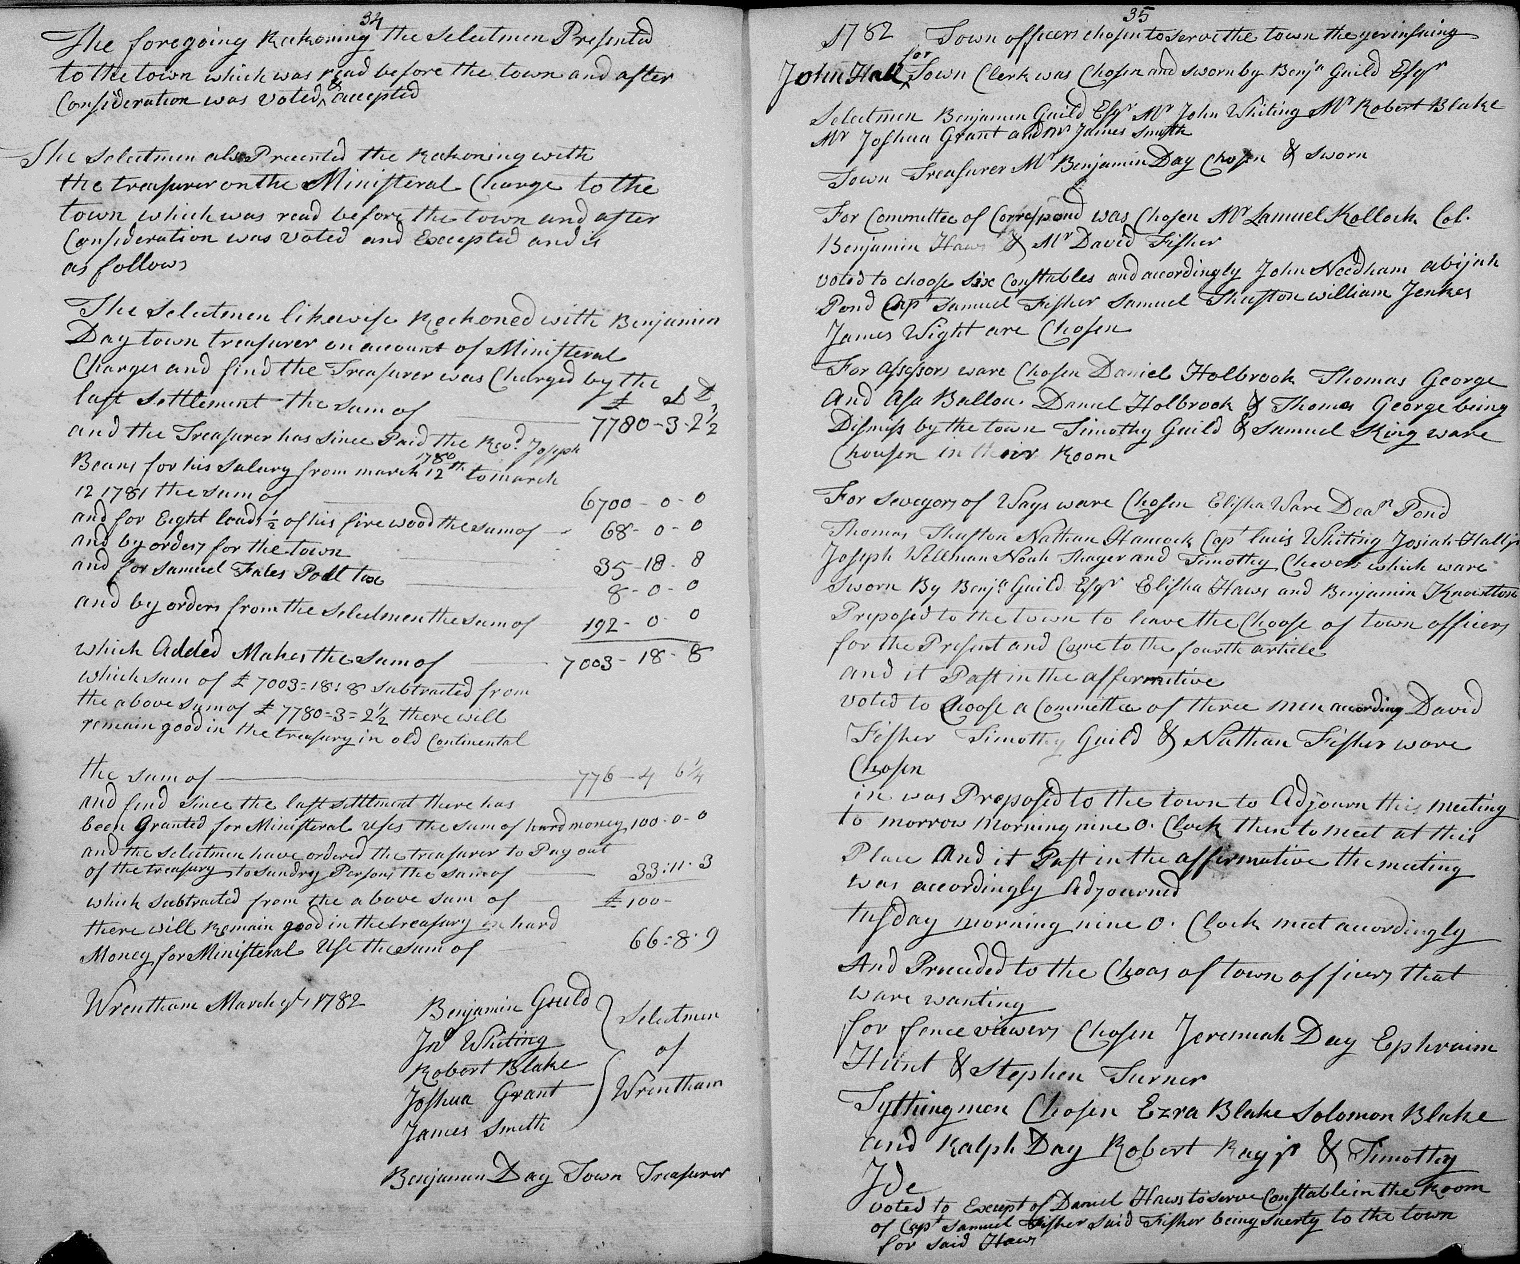 34
The foregoing Reckoning the Selectmen Presented
to the town which was read before the town and after
Consideration was voted & accepted
The Selectmen also Precented the Reckoning with
the treasurer on the Ministeral Charge to the
town which was read before the town and after
Consideration was voted and Excepted and is
as follows
The Selectmen likewise Reckoned with Benjamin
Day town treasurer on account of Ministeral
Charges and find the Treasurer was Charged by the
last Settlement the sum of 7780-3-2½
and the Treasurer has since Paid the Revd. Joseph
Beans for his Salary from march 12th 1780 to march
12 1781 the sum of 6700-0-0
and for Eight loads ½ of his fire wood the sum of 68-0-0
and by orders for the town 35-18-8
and for Samuel Fales Poll tax 8-0-0
and by orders from the Selectmen the sum of 192-0-0
which Added Makes the Sum of 7003-18-8
which sum of £7003=18=8 Subtracted from
the above sum of £7780=3=2½ there will
remain good in the treasury in old Continental
the sum of 776-4 6¼
and find since the last settlment there has
been Granted for Ministeral uses the sum of hard money 100-0-0
and the selectmen have ordered the treasurer to Pay out
of the treasury to Sundry Persons the sum of 33:11-3
which subtracted from the above sum of £100-
there will Remain good in the treasury in hard
Money for Ministeral Use the sum of 66:8:9
Wrentham March 9th 1782
Benjamin Guild
Jno Whiting
Robert Blake
Joshua Grant
James Smith
Selectmen
of
Wrentham
Benjamin Day Town Treasurer
35
1782 Town officers chosen to serve the town the yer insuing
John Hall for Town Clerk was Chosen and sworn by Benja Guild Esqr
Selectmen Benjamin Guild Esqr Mr John Whiting Mr Robert Blake
Mr Joshua Grant and Mr James Smith
Town Treasurer Mr Benjamin Day Chosen & Sworn
For Committee of Correspond was Chosen Mr Lamuel Kollock Col.
Benjamin Haws & Mr David Fisher
voted to choose six Consttables and accordingly John Needham abijah
Pond Capt Samuel Fisher Samuel Thurston william Jenkes
James Wight are Chosen
For assessors ware Chosen Daniel Holbrook Thomas George
And Asa Ballou. Daniel Holbrook & Thomas George being
Dismiss by the town Timothy Guild & Samuel King ware
Chousen in their Room
For Sevegors of Ways ware Chosen Elisha Ware Dean Pond
Thomas Thurston Nathan Hancock Capt luis Whiting Josiah Hall jr
Joseph Wellman Noah Thayer and Timothy Chever which ware
Sworn By Benja Guild Esqr Elisha Haws and Benjamin Knowlton
Preposed to the town to leave the Choose of town officers
for the Present and Come to the fourth article
and it Past in the affermitive
voted to Choose a Committee of three men according David
Fisher Timothy Guild & Nathan Fisher ware
Chosen
in was Preposed to the town to Adjourn this meeting
to morrow morning nine o. Clock then to meet at this
Place And it Past in the affirmative the meeting
was accordingly Adjourned
tusday morning nine o. Clock meet accordingly
And Preceded to the Choas of town officers that
ware wanting
for fence viewers Chosen Jeremiah Day Ephraim
Hunt & Stephen Turner
Tythingmen Chosen Ezra Blake Solomon Blake
and Ralph Day Robert Ray jr & Timothy
Ide
voted to Except of Daniel Haws to serve Consttable in the Room
of Capt Samuel Fisher Said Fisher being suerty to the town
for said Haws